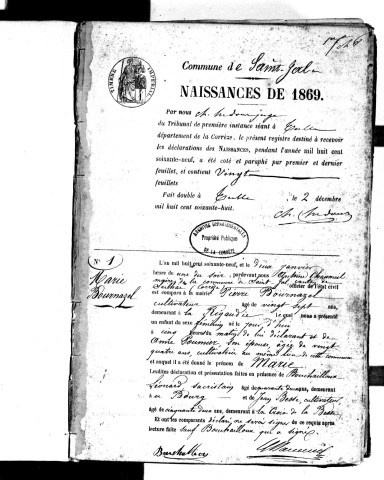 Commune de Saint-Jal
NAISSANCES DE 1869.
Par nous
du Tribunal de première instance séant à Tulle
département de la Corrèze, le présent registre destiné à recevoir
les déclarations des NAISSANCES, pendant l'année mil huit cent
soixante-neuf, a été coté et paraphé par premier et dernier
feuillet, et contient Vingt
feuillets
Fait double à Tulle le 2 décembre
mil huit cent soixante-huit.
ARCHIVES DÉPARTEMENTALES
Propriété Publique
DE LA CORRÈZE
N° 1
Marie
Bournazel
L'an mil huit cent soixante-neuf, et le deux janvier
heure de du soir, pardevant nous
maire de la commune de Saint Jal canton de
officier de l'état civil
est comparu à la mairie Pierre Bournazel
cultivateur âgé de vingt sept ans,
demeurant à la Rigaudie lequel nous a présenté
un enfant du sexe féminin né le jour d'hui
à cinq du matin, de lui déclarant et de
Anne son épouse, âgée de vingt
quatre ans, cultivatrice au même lieu de cette commune
et auquel il a été donné le prénom de Marie
Lesdites déclaration et présentation faites en présence de
Léonard sacristain âgé de ans, demeurant
au Bourg et de Besse, cultivateur,
âgé de cinquante deux ans, demeurant à la Croix de la Besse
Et ont les comparants déclaré ne savoir signer de ce requis après
lecture faite sauf qui a signé